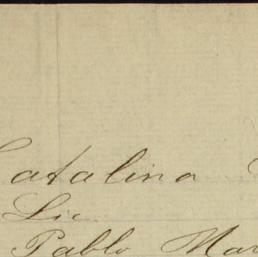 Catalina
Lic
Pablo Mar